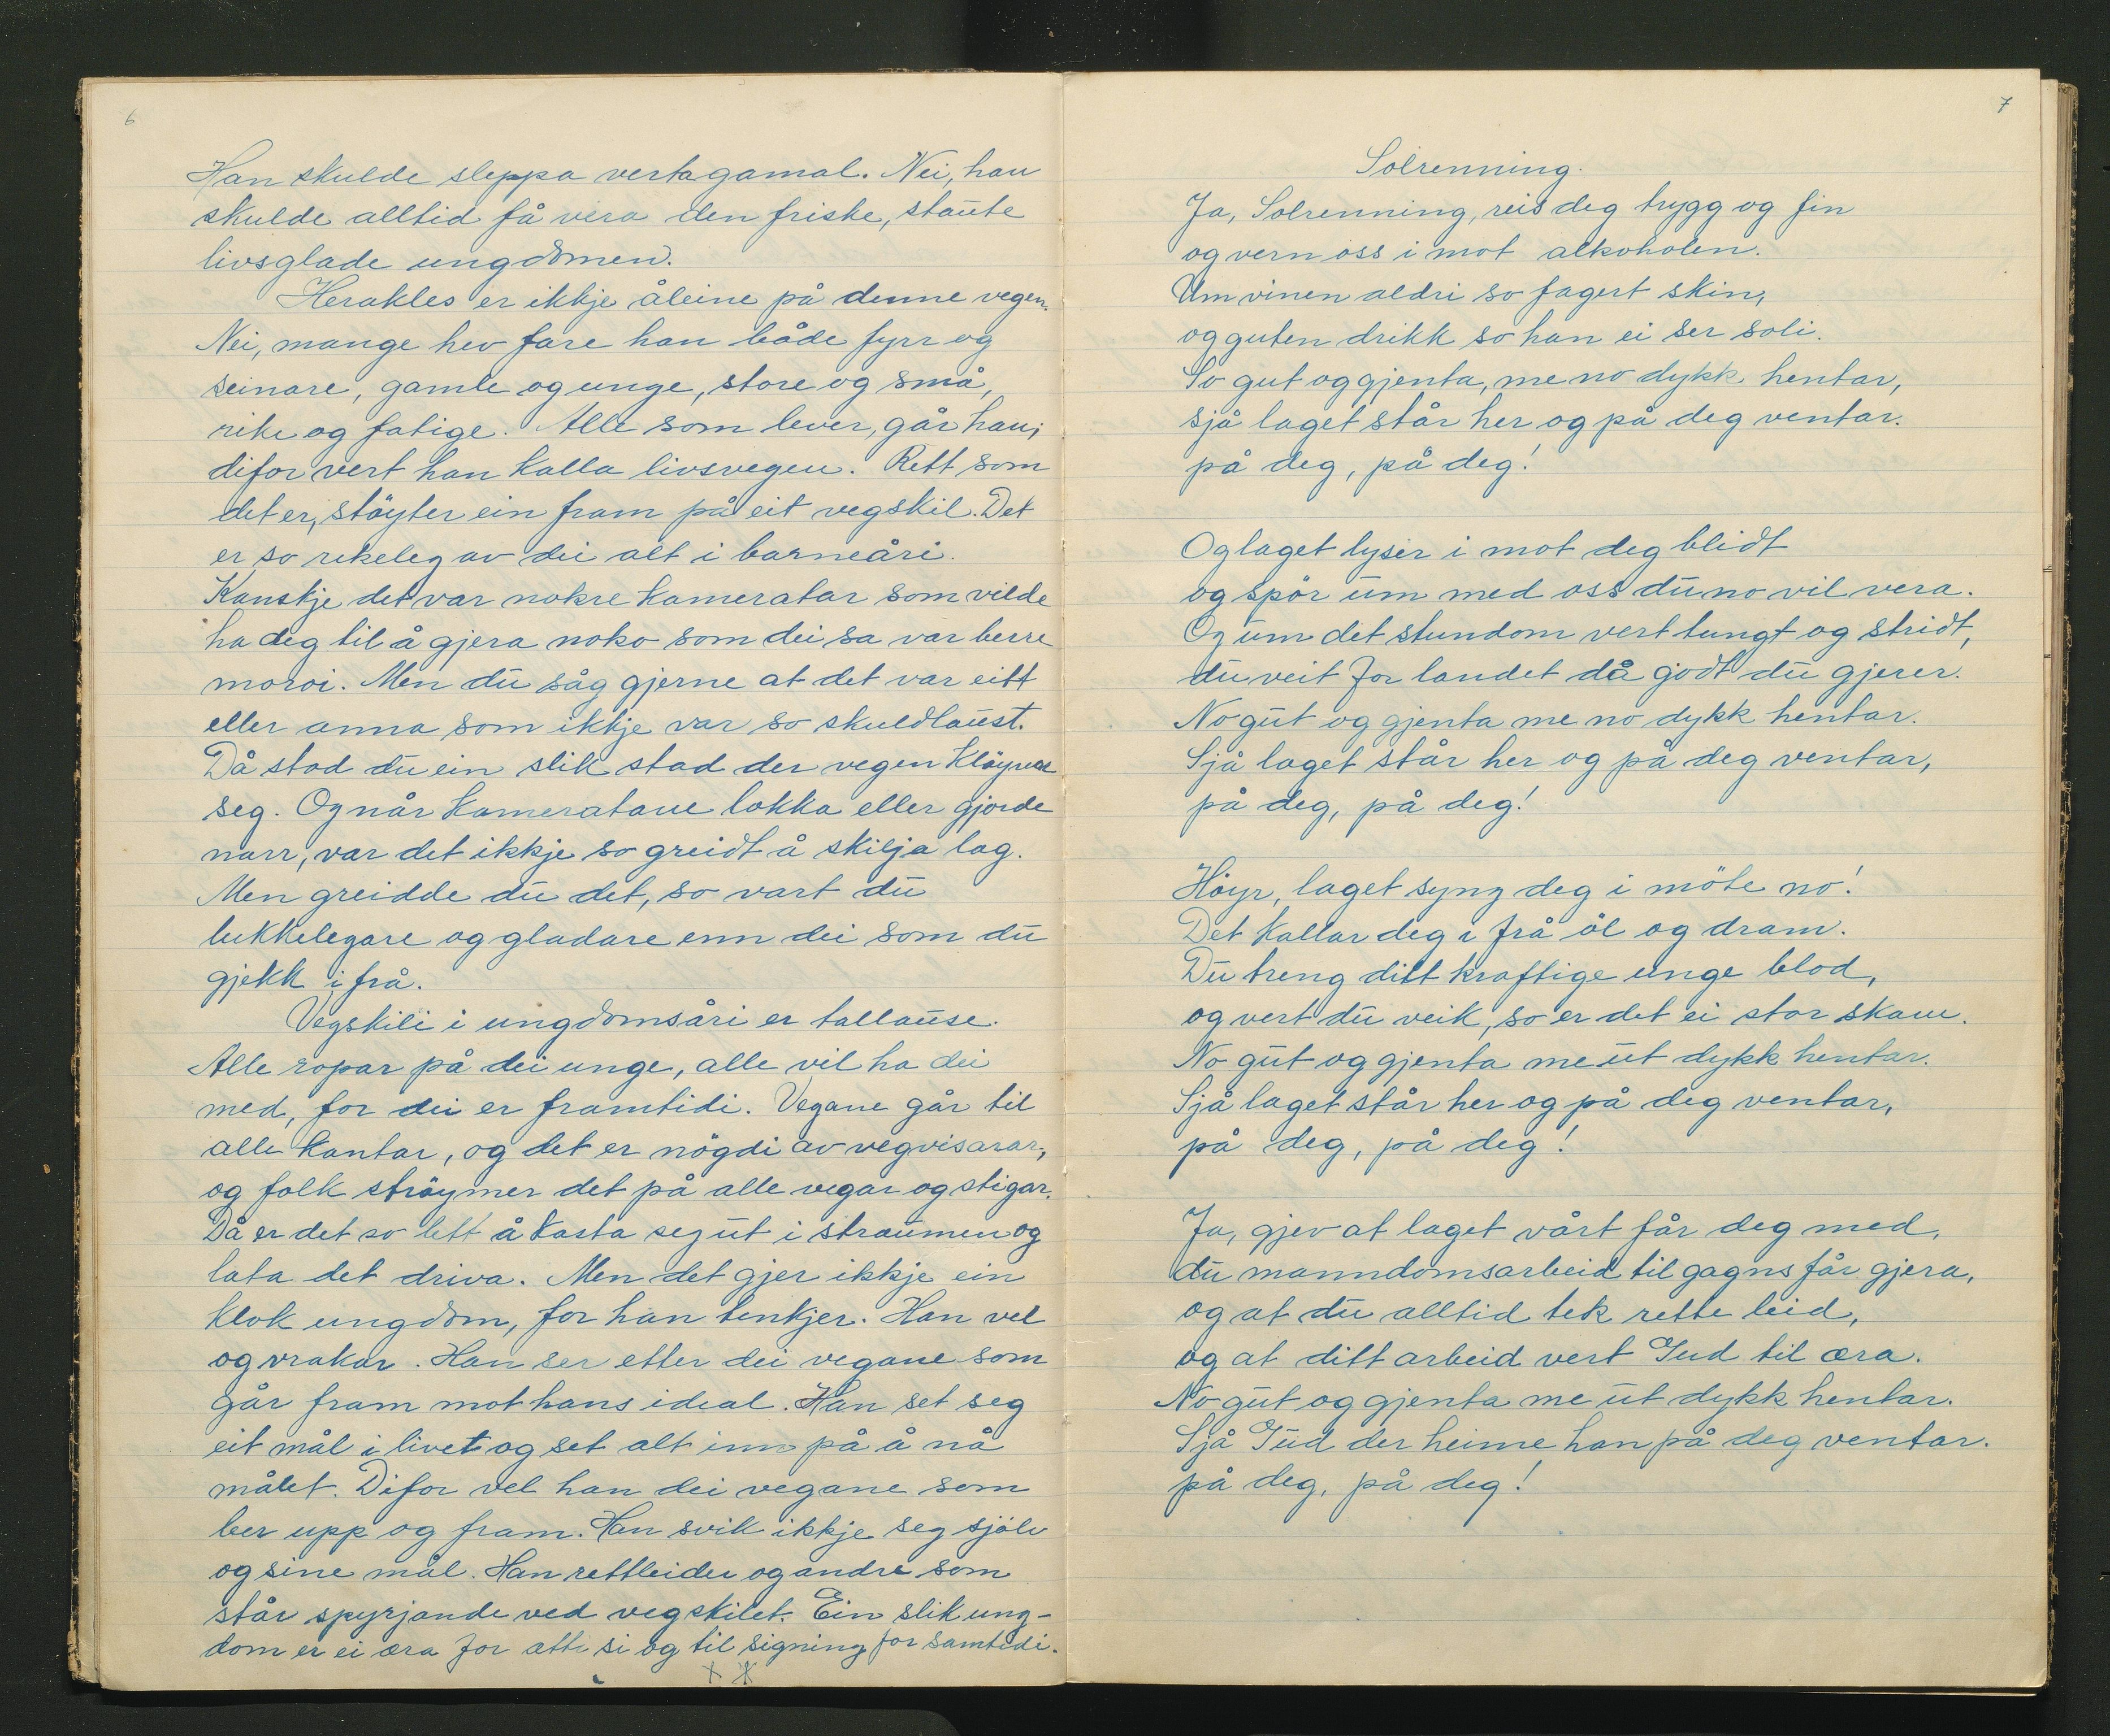 6
Han skulde sleppa verta gamal. Nei, han
skulde alltid få vera den friske, staute
livsglade ungdomen.
Herakles er ikkje åleine på denne vegen.
Nei, mange hev fare han både fyrr og
seinare, gamle og unge, store og små,
rike og fatige. Alle som lever, går han;
difor vert han kalla livsvegen. Rett som
det er, støyter ein fram på eit vegskil. Det
er so rikeleg av dei alt i barneåri.
Kanskje det var nokre kameratar som vilde
ha deg til å gjera noko som dei sa var berre
moroi. Men du såg gjerne at det var eitt
eller anna som ikkje var so skuldlaust.
Då stod du ein slik stad der vegen kløyver
seg. Og når kameratane lokka eller gjorde
narr, var det ikkje so greidt å skilja lag.
Men greidde du det, so vart du
lukkelegare og gladare enn dei som du
gjekk i frå.
Vegskili i ungdomsåri er tallause.
Alle ropar på dei unge, alle vil ha dei
med, for dei er framtidi. Vegane går til
alle kantar, og det er nögdi av vegvisarar,
og folk ströymer det på alle vegar og stigar.
Då er det so lett å kasta seg ut i straumen og
lata det driva. Men det gjer ikkje ein
klok ungdom, for han tenkjer. Han vel
og vrakar. Han ser etter dei vegane som
går fram mot hans ideal. Han set seg
eit mål i livet og set alt inn på å nå
målet. Difor vel han dei vegane som
ber upp og fram. Han svik ikkje seg sjölv
og sine mål. Han rettleider og andre som
står spyrjande ved vegskilet. Ein slik ung-
dom er ei æra for ætti si og til signing for samtidi.
7
Solrenning.
Ja, Solrenning, reis deg trygg og fin
og vern oss i mot alkoholen.
Um vinen aldri so fagert skin,
og guten drikk so han ei ser soli.
So gut og gjenta, me no dykk hentar,
sjå laget står her og på deg ventar.
på deg, på deg!
Og laget lyser i mot deg blidt
og spör um med oss du no vil vera.
Og um det stundom vert tungt og stridt,
du veit for landet då godt du gjerer.
No gut og gjenta me no dykk hentar.
Sjå laget står her og på deg ventar,
på deg, på deg!
Höyr, laget syng deg i möte no!
Det kallar deg i frå öl og dram.
Du treng ditt kraftige unge blod,
og vert du veik, so er det ei stor skam.
No gut og gjenta me ut dykk hentar.
Sjå laget står her og på deg ventar,
på deg, på deg!
Ja, gjev at laget vårt får deg med,
du manndomsarbeid til gagns får gjera,
og at du alltid tek rette leid,
og at ditt arbeid vert Gud til æra.
No gut og gjenta me ut dykk hentar.
Sjå Gud der heime han på deg ventar.
på deg, på deg!